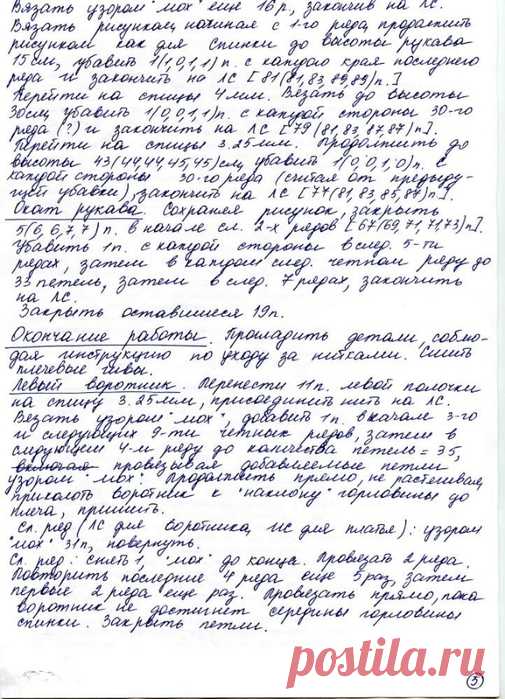 Вязать узором "мох" еще 16 р, закончив на ЛС.
Вязать рисунком, начиная с 1-го ряда, продолжить
рисунком как для спинки до высоты рукава
15 см, убавить 1(1,0,1,1) п. с каждого края последнего
ряда и закончить на ЛС [81(81,83,89,89) п.]
Перейти на спицы 4 мм. Вязать до высоты
30 см, убавить 1(0,0,1,1) п. с каждой стороны 30-го
ряда (?) и закончить на ЛС [79(81,83,87,87) п].
Перейти на спицы 3.25 мм. Продолжить до
высоты 43(44,44,45,45) см, убавить 1(0,0,1,0) п. с
каждой стороны 30-го ряда (считая от предыду-
щей убавки), закончить на ЛС [77(81,83,85,87) п].
Окат рукава. Сохраняя рисунок, закрыть
5(6,6,7,7) п. в начале сл. 2-х рядов [67(69,71,71,73) п]
Убавить 1 п. с каждой стороны в след. 5-ти
рядах, затем в каждом след. четном ряду до
33 петель, затем в след. 7 рядах, закончить
на ЛС.
Закрыть оставшиеся 19 п.
Окончание работы. Прогладить детали, соблю-
дая инструкцию по уходу за нитками. Сшить
плечевые швы.
Левый воротник. Перенести 11 п. левой полочки
на спицу 3.25 мм, присоединить нить на ЛС.
Вязать узором "мох", добавить 1 п. в начале 3-го
и следующих 9-ти четных рядов, затем в
следующем 4-м ряду до количества петель = 35,
включая провязывая добавляемые петли
узором "мох". Продолжить прямо, не растягивая,
приколоть воротник к "наклону" горловины до
плеча, пришить.
Сл. ряд (ЛС для воротника, ИС для платья): узором
"мох" 31 п, повернуть.
Сл. ряд: снять 1, "мох" до конца. Провязать 2 ряда.
Повторить последние 4 ряда еще 5 раз, затем
первые 2 ряда еще раз. Провязать прямо, пока
воротник не достигнет середины горловины
спинки. Закрыть петли.
5
postila.ru